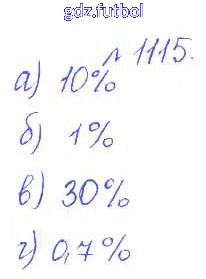 gdz.futbol
№ 1115.
а) 10%
б) 1%
в) 30%
г) 0,7%